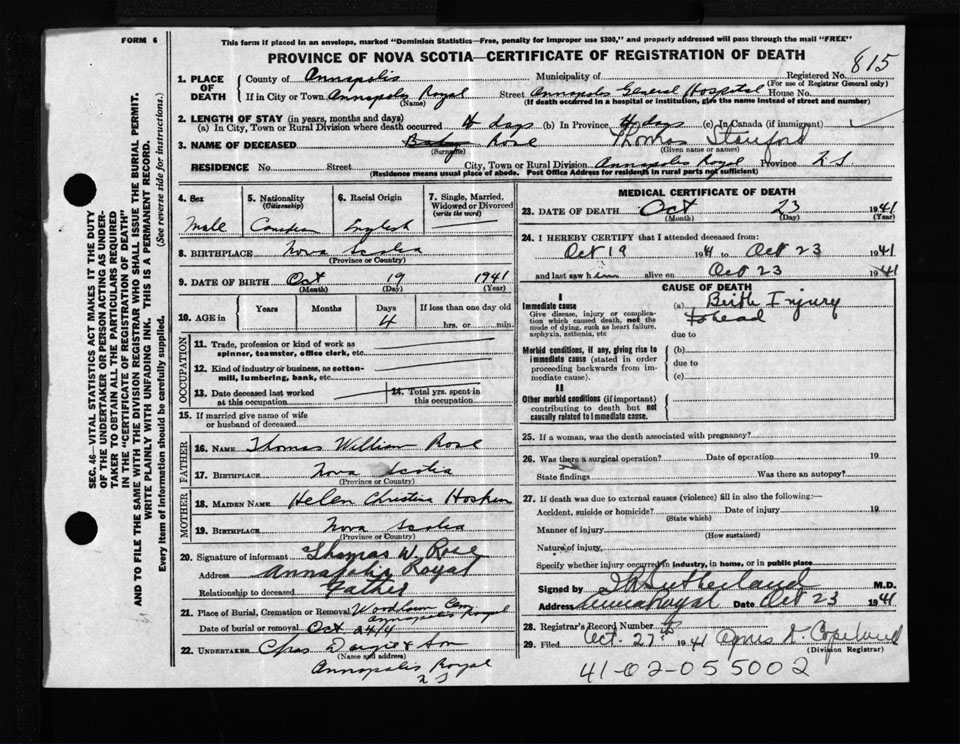 FORM 6
This form if placed in an envelope, marked "Dominion Statistics—Free, penalty for improper use $300," and properly addressed will pass through the mail "FREE"
PROVINCE OF NOVA SCOTIA—CERTIFICATE OF REGISTRATION OF DEATH
815
1. PLACE OF DEATH County of Annapolis Municipality of Registered No. (For use of Registrar General only)
If in City or Town Annapolis Royal (Name) Street Annapolis General Hospital House No.
(If death occurred in a hospital or institution, give the name instead of street and number)
2. LENGTH OF STAY (in years, months and days)
(a) In City, Town or Rural Division where death occurred 4 days (b) In Province 4 days (c) In Canada (if immigrant)
3. NAME OF DECEASED Baby Rose (Surname) Thomas Stanford (Given name or names)
RESIDENCE No. Street City, Town or Rural Division Annapolis Royal Province N S
(Residence means usual place of abode. Post Office Address for residents in rural parts not sufficient)
4. Sex Male
5. Nationality (Citizenship) Canadian
6. Racial Origin English
7. Single, Married, Widowed or Divorced (write the word)
8. BIRTHPLACE Nova Scotia
(Province or Country)
9. DATE OF BIRTH Oct 19 1941
(Month) (Day) (Year)
10. AGE in Years Months Days 4 If less than one day old hrs. or min.
OCCUPATION
11. Trade, profession or kind of work as spinner, teamster, office clerk, etc.
12. Kind of industry or business, as cotton-mill, lumbering, bank, etc.
13. Date deceased last worked at this occupation
14. Total yrs. spent in this occupation
15. If married give name of wife or husband of deceased
FATHER
16. NAME Thomas William Rose
17. BIRTHPLACE Nova Scotia
(Province or Country)
MOTHER
18. MAIDEN NAME Helen Christina Hosken
19. BIRTHPLACE Nova Scotia
(Province or Country)
20. Signature of informant Thomas W. Rose
Address Annapolis Royal
Relationship to deceased Father
21. Place of Burial, Cremation or Removal Woodlawn Cem Annapolis Royal
Date of burial or removal Oct 24/4
22. UNDERTAKER Chas & Son
(Name and address)
Annapolis Royal
N S
MEDICAL CERTIFICATE OF DEATH
23. DATE OF DEATH Oct 23 1941
(Month) (Day) (Year)
24. I HEREBY CERTIFY that I attended deceased from:
Oct 19 1941 to Oct 23 1941
and last saw him alive on Oct 23 1941
CAUSE OF DEATH
I
Immediate cause (a) Birth Injury
Give disease, injury or complication which caused death, not the mode of dying, such as heart failure, asphyxia, asthenia, etc
to head
due to
Morbid conditions, if any, giving rise to immediate cause (stated in order proceeding backwards from immediate cause).
(b)
due to
(c)
II
Other morbid conditions (if important) contributing to death but not causally related to immediate cause.
25. If a woman, was the death associated with pregnancy?
26. Was there a surgical operation? Date of operation 19
State findings Was there an autopsy?
27. If death was due to external causes (violence) fill in also the following:—
Accident, suicide or homicide? Date of injury 19
(State which)
Manner of injury
(How sustained)
Nature of injury
Specify whether injury occurred in industry, in home, or in public place
Signed by Sutherland M.D.
Address Anna Royal Date Oct 23 1941
28. Registrar's Record Number
29. Filed Oct. 27th 1941 Agnes D. Copeland
(Division Registrar)
41-02-055002
SEC. 46—VITAL STATISTICS ACT MAKES IT THE DUTY
OF THE UNDERTAKER OR PERSON ACTING AS UNDER-
TAKER TO OBTAIN ALL THE PARTICULARS REQUIRED
IN THE "CERTIFICATE OF REGISTRATION OF DEATH"
AND TO FILE THE SAME WITH THE DIVISION REGISTRAR WHO SHALL ISSUE THE BURIAL PERMIT.
WRITE PLAINLY WITH UNFADING INK. THIS IS A PERMANENT RECORD.
Every item of information should be carefully supplied. (See reverse side for instructions.)